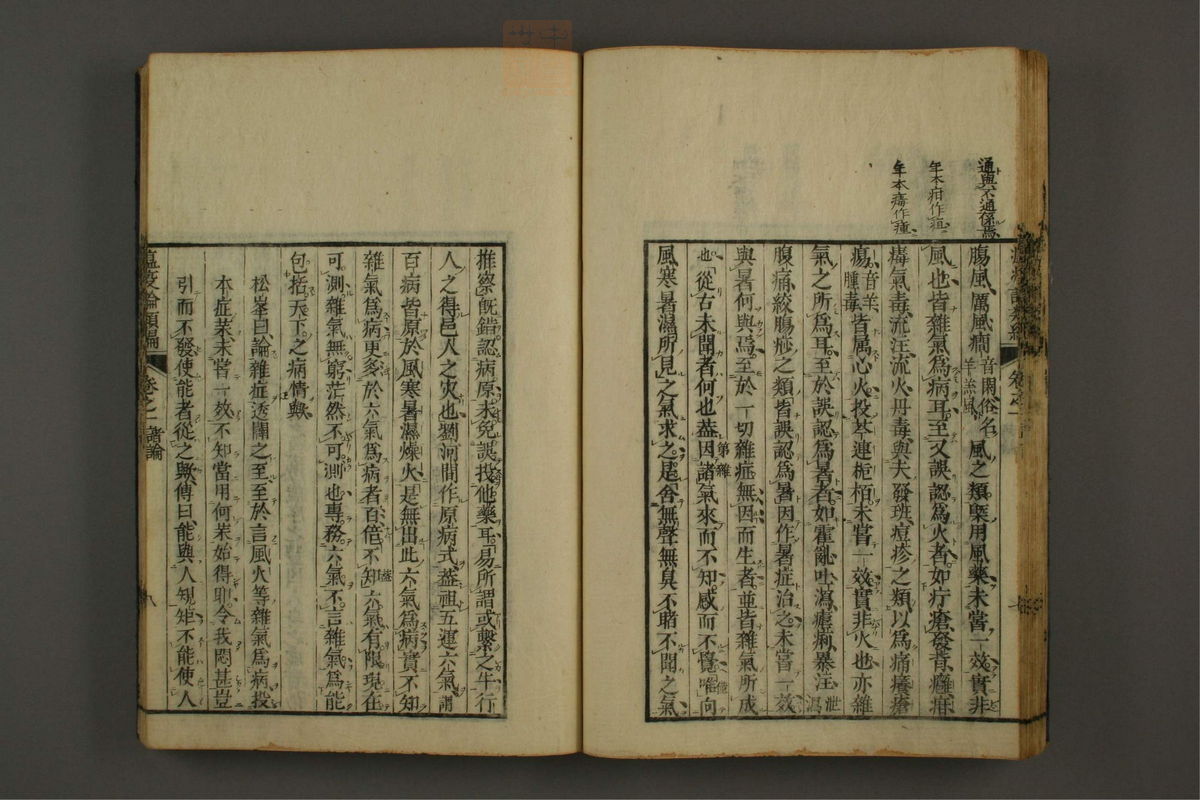 通與不通係焉
年本疳作疽
年本癆作瘇
腸風厲風癎音閑俗名羊羔風風之類槩用風藥未嘗一效實非
風也皆雜氣爲病耳至又誤認爲火者如疔瘡發背癰疽
毒氣毒流注流火丹毒與夫發斑痘疹之類以爲痛癢瘡
瘍音羊腫毒皆屬心火投芩連梔栢未嘗一效實非火也亦雜
氣之所爲耳至於誤認爲暑者如霍亂吐瀉瘧痢暴注泄瀉
腹痛絞腸痧之類皆誤認爲暑因作暑症治之未嘗一效
與暑何與焉至於一切雜症無因而生者並皆雜氣所成
也從古未聞者何也葢因諸氣來而不知感而不覺惟向
風寒暑濕所見之氣求之是舍無聲無臭不睹不聞之氣
瘟疫論類編
卷之一
諸論
八
推察旣錯認病原未免誤投他藥耳易所謂或繫之牛行
人之得邑人之灾也劉河間作原病式葢祖五運六氣謂
百病皆原於風寒暑濕燥火是無出此六氣爲病實不知
雜氣爲病更多於六氣爲病者百倍不知六氣有限現在
可測雜氣無窮茫然不可測也專務六氣不言雜氣爲能
包括天下之病情歟
松峯曰論雜症透闢之至至於言風火等雜氣爲病投
本症藥未嘗一效不知當用何藥始得耶令我悶甚豈
引而不發使能者從之歟傳曰能與人規矩不能使人